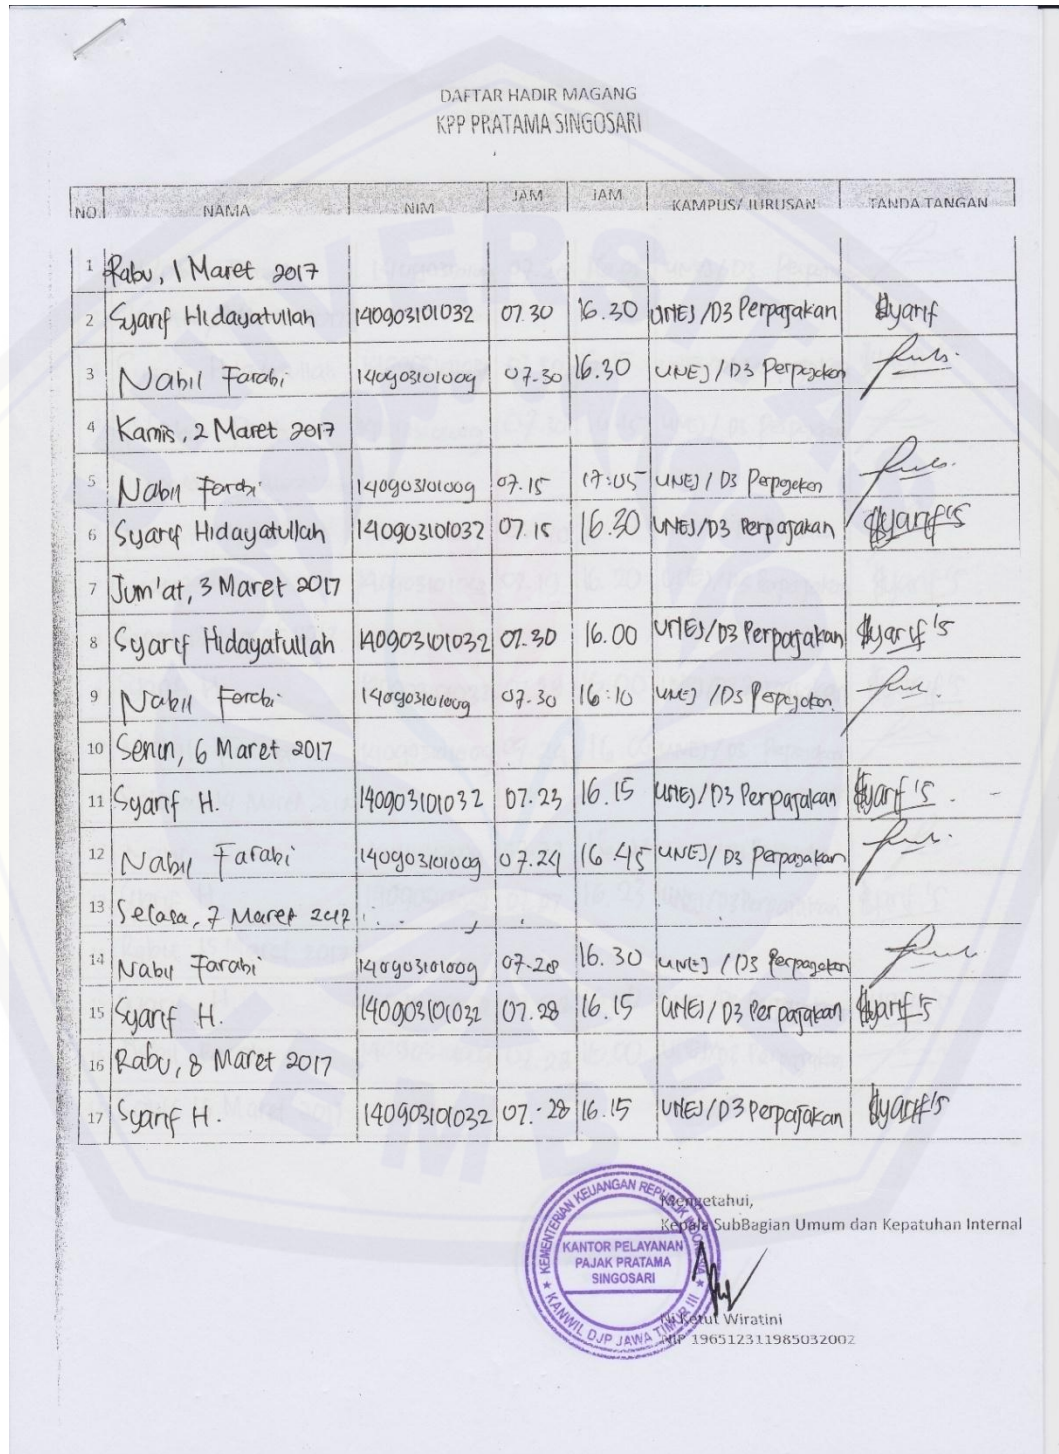 DAFTAR HADIR MAGANG
KPP PRATAMA SINGOSARI
NO. NAMA NIM JAM JAM KAMPUS/ JURUSAN TANDA TANGAN
1 Rabu, 1 Maret 2017
2 Syarif Hidayatullah 140903101032 07.30 16.30 UNEJ/D3 Perpajakan Syarif
3 Nabil Farabi 140903101009 07.30 16.30 UNEJ/D3 Perpajakan
4 Kamis, 2 Maret 2017
5 Nabil Farabi 140903101009 07.15 17:05 UNEJ/D3 Perpajakan
6 Syarif Hidayatullah 140903101032 07.15 16.30 UNEJ/D3 Perpajakan Syarif's
7 Jum'at, 3 Maret 2017
8 Syarif Hidayatullah 140903101032 07.30 16.00 UNEJ/D3 Perpajakan Syarif's
9 Nabil Farabi 140903101009 07.30 16:10 UNEJ/D3 Perpajakan.
10 Senin, 6 Maret 2017
11 Syarif H. 140903101032 07.23 16.15 UNEJ/D3 Perpajakan Syarif's
12 Nabil Farabi 140903101009 07.24 16.45 UNEJ/D3 Perpajakan
13 Selasa, 7 Maret 2017
14 Nabil Farabi 140903101009 07.28 16.30 UNEJ/D3 Perpajakan
15 Syarif H. 140903101032 07.28 16.15 UNEJ/D3 Perpajakan Syarif's
16 Rabu, 8 Maret 2017
17 Syarif H. 140903101032 07.28 16.15 UNEJ/D3 Perpajakan Syarif's
Mengetahui,
Kepala SubBagian Umum dan Kepatuhan Internal
KEMENTERIAN KEUANGAN REPUBLIK INDONESIA
KANTOR PELAYANAN
PAJAK PRATAMA
SINGOSARI
KANWIL DJP JAWA TIMUR III
Ni Ketut Wiratini
NIP 196512311985032002